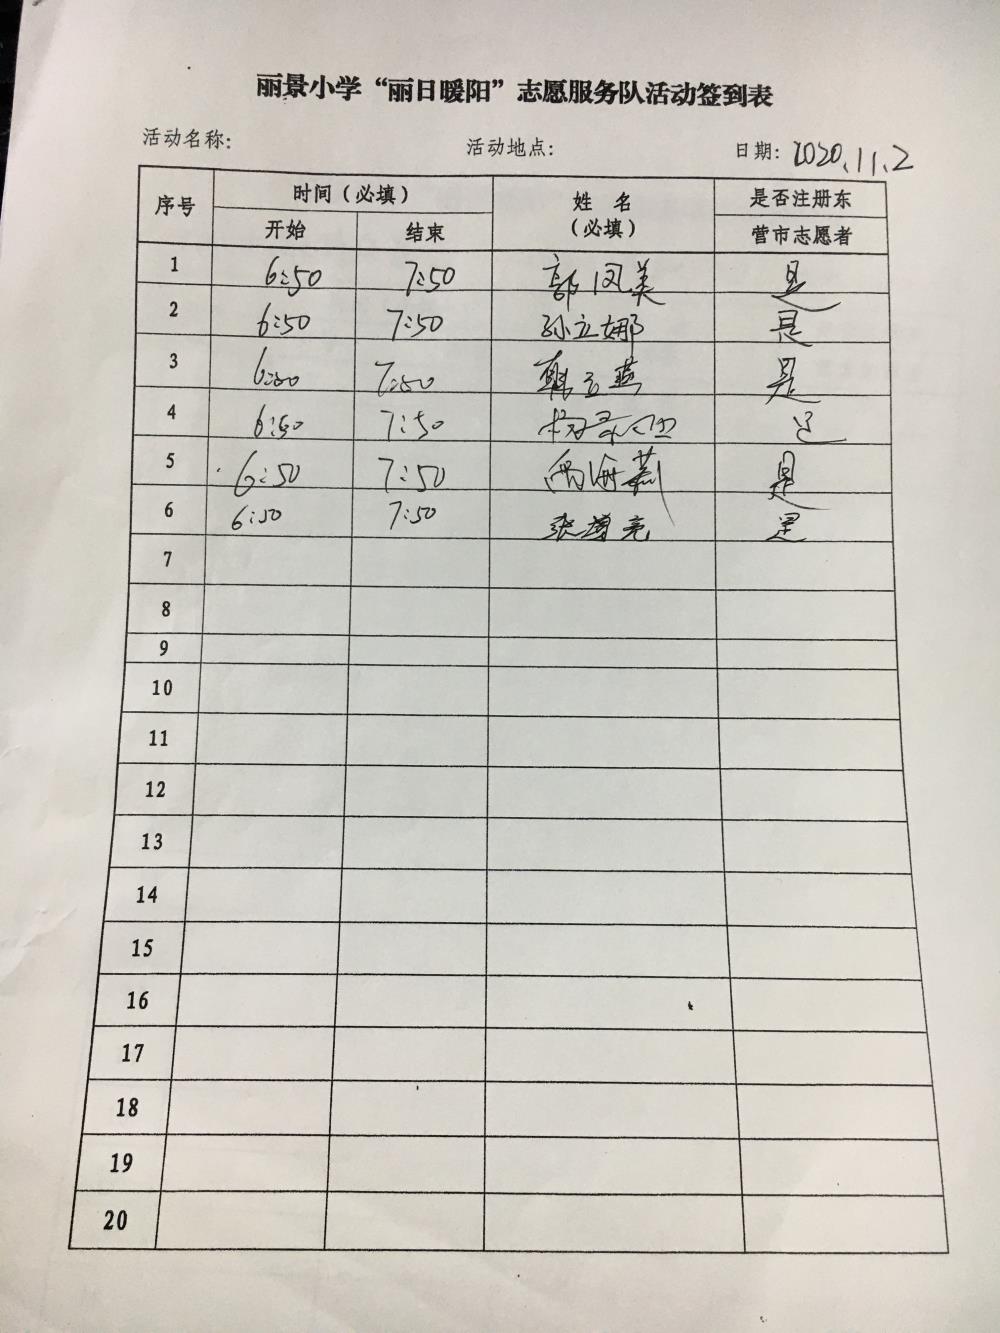 丽景小学“丽日暖阳”志愿服务队活动签到表
活动名称: 活动地点: 日期: 2020.11.2
序号 时间（必填） 姓 名 （必填） 是否注册东营市志愿者
开始 结束
1 6:50 7:50 郭凤美 是
2 6:50 7:50 孙立娜 是
3 6:50 7:50 韩立燕 是
4 6:50 7:50 是
5 6:50 7:50 是
6 6:50 7:50 张博亮 是
7
8
9
10
11
12
13
14
15
16
17
18
19
20